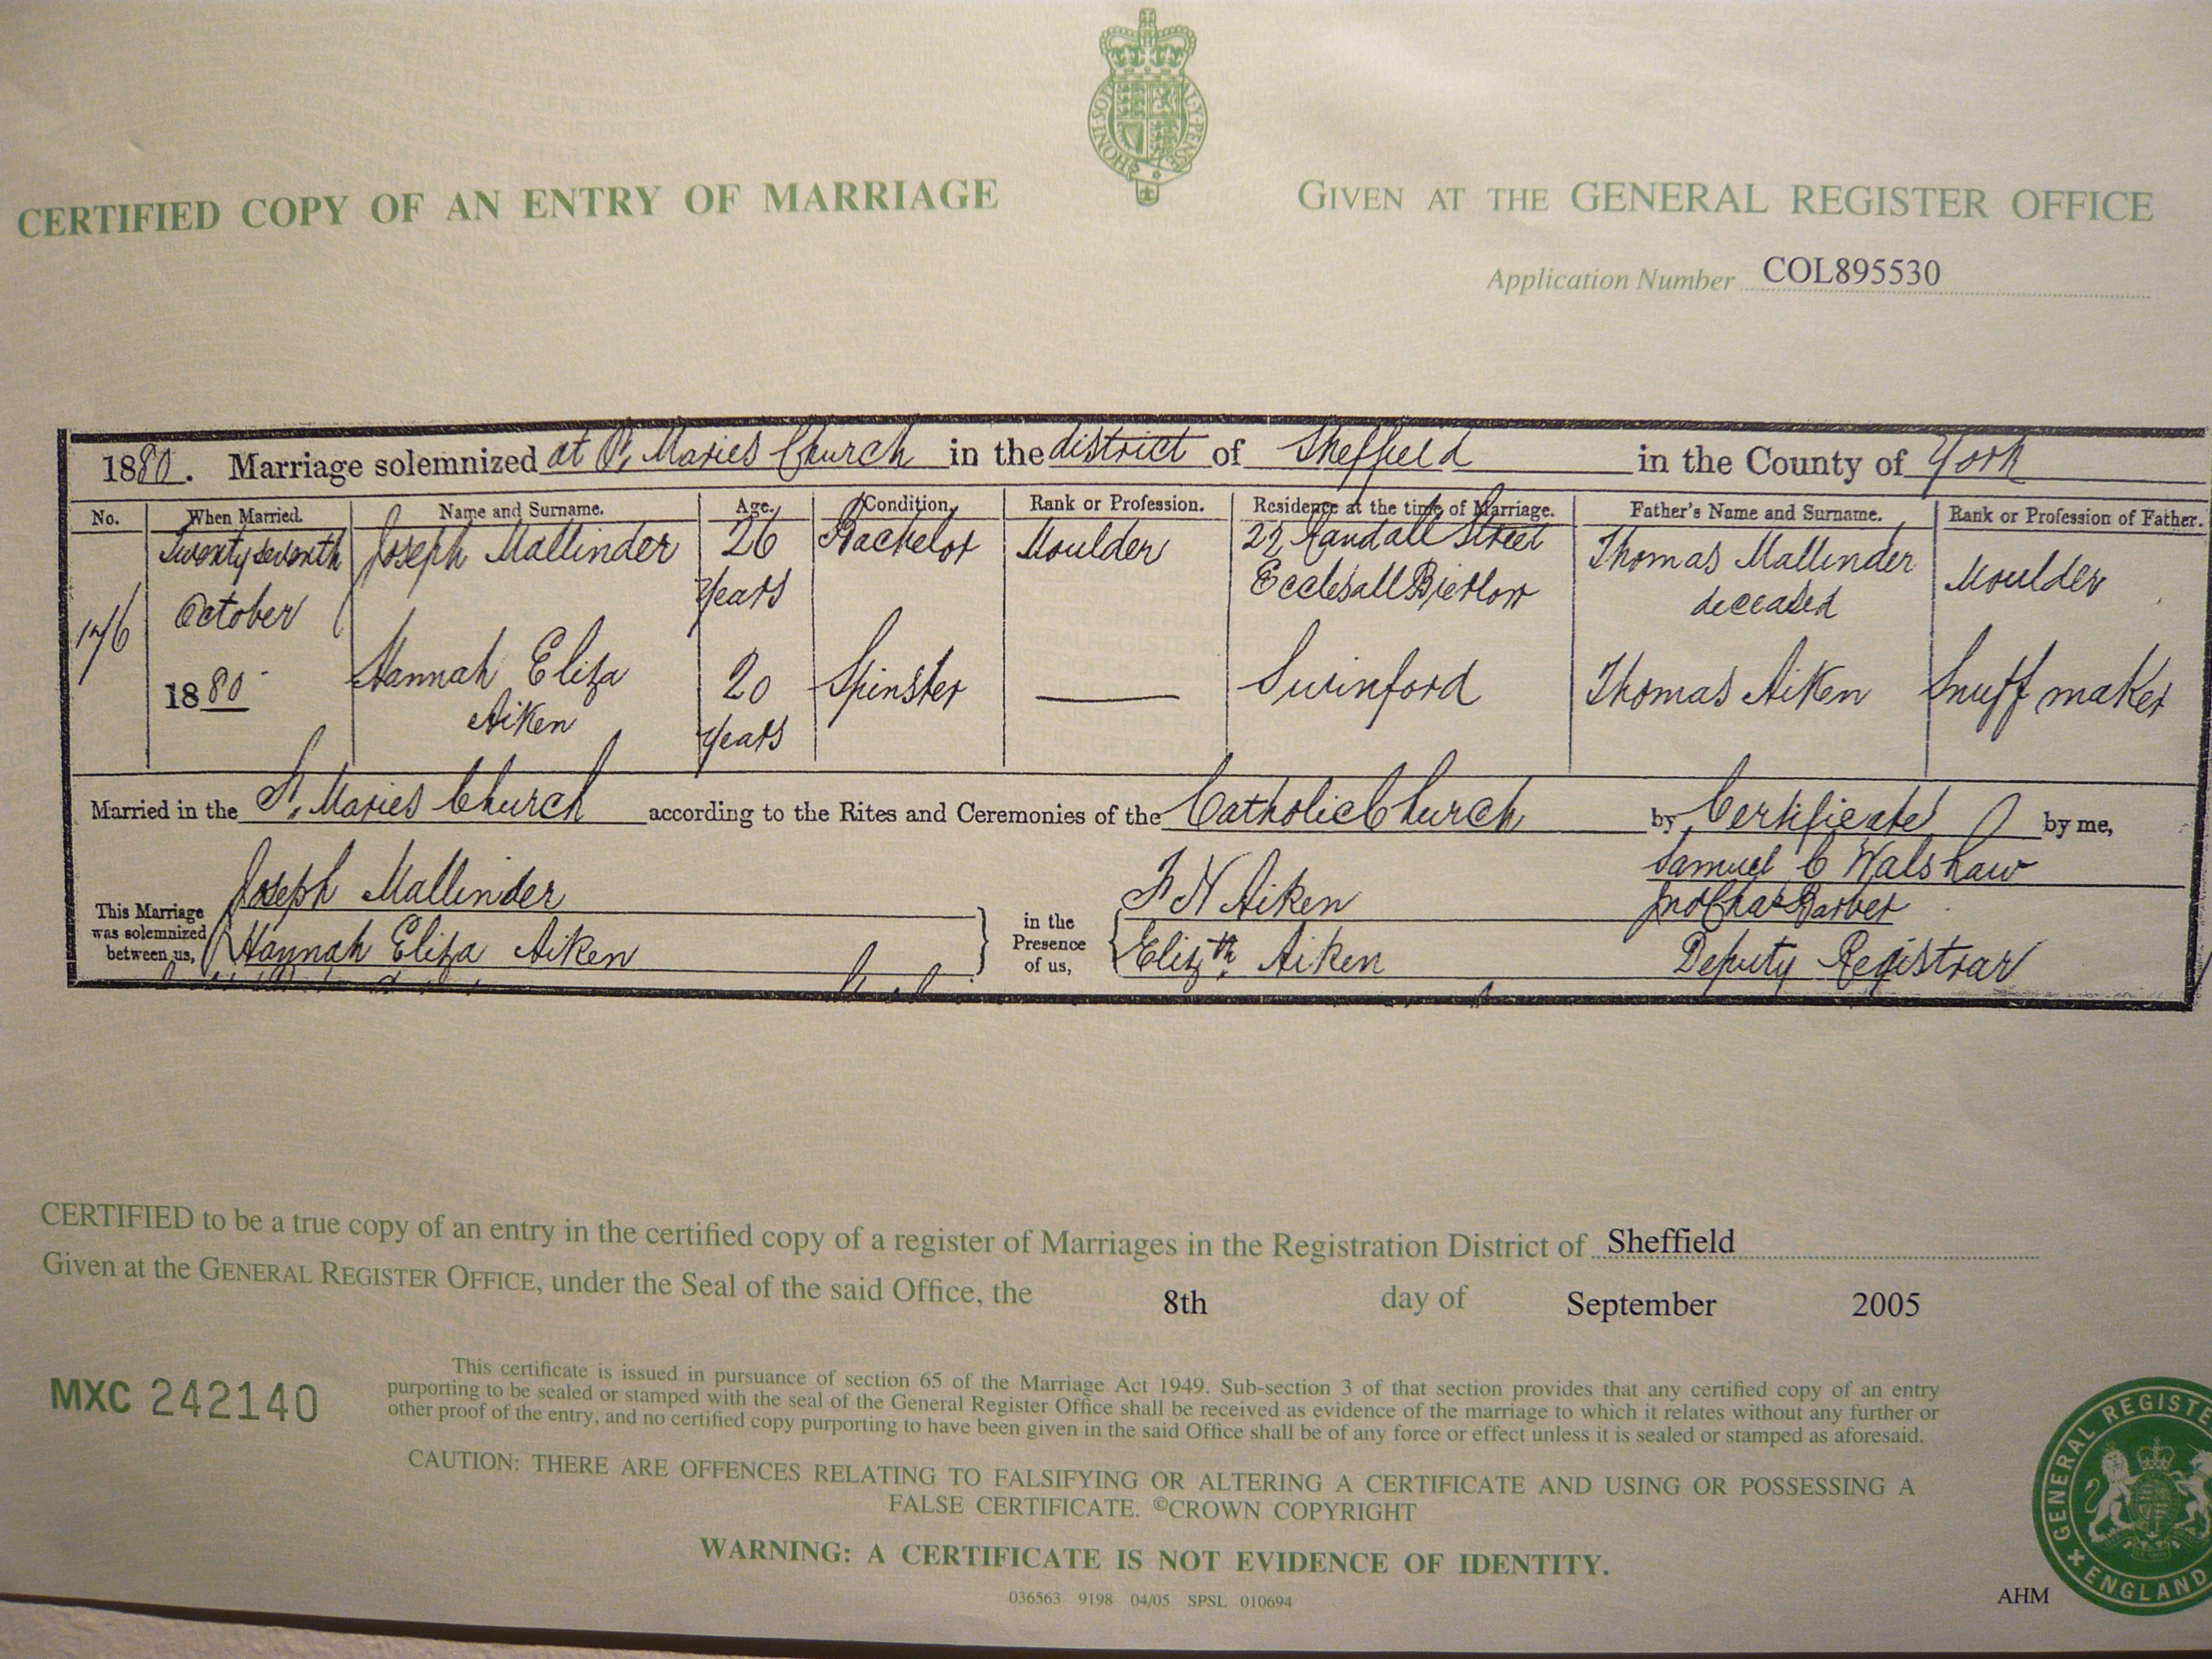 HONI SOI QUI MAL Y PENSE
CERTIFIED COPY OF AN ENTRY OF MARRIAGE
GIVEN AT THE GENERAL REGISTER OFFICE
Application Number COL895530
1880. Marriage solemnized at St. Maries Church in the district of Sheffield in the County of York
No. When Married. Name and Surname. Age. Condition. Rank or Profession. Residence at the time of Marriage. Father's Name and Surname. Rank or Profession of Father.
176
Twenty seventh
October
1880
Joseph Mallinder
26
years
Bachelor
Moulder
22 Randall Street
Ecclesall Bierlow
Thomas Mallinder
deceased
Moulder
Hannah Eliza
Aiken
20
years
Spinster
Swinford
Thomas Aiken
Snuff maker
Married in the St. Maries Church according to the Rites and Ceremonies of the Catholic Church by Certificate by me,
This Marriage
was solemnized
between us,
Joseph Mallinder
Hannah Eliza Aiken
in the
Presence
of us,
Aiken
Elizth Aiken
Samuel C Walshaw
Jno Chas Barber
Deputy Registrar
CERTIFIED to be a true copy of an entry in the certified copy of a register of Marriages in the Registration District of Sheffield
Given at the GENERAL REGISTER OFFICE, under the Seal of the said Office, the 8th day of September 2005
MXC 242140
This certificate is issued in pursuance of section 65 of the Marriage Act 1949. Sub-section 3 of that section provides that any certified copy of an entry
purporting to be sealed or stamped with the seal of the General Register Office shall be received as evidence of the marriage to which it relates without any further or
other proof of the entry, and no certified copy purporting to have been given in the said Office shall be of any force or effect unless it is sealed or stamped as aforesaid.
CAUTION: THERE ARE OFFENCES RELATING TO FALSIFYING OR ALTERING A CERTIFICATE AND USING OR POSSESSING A
FALSE CERTIFICATE. ©CROWN COPYRIGHT
WARNING: A CERTIFICATE IS NOT EVIDENCE OF IDENTITY.
036563 9198 04/05 SPSL 010694
AHM
GENERAL REGISTE
ENGLAND